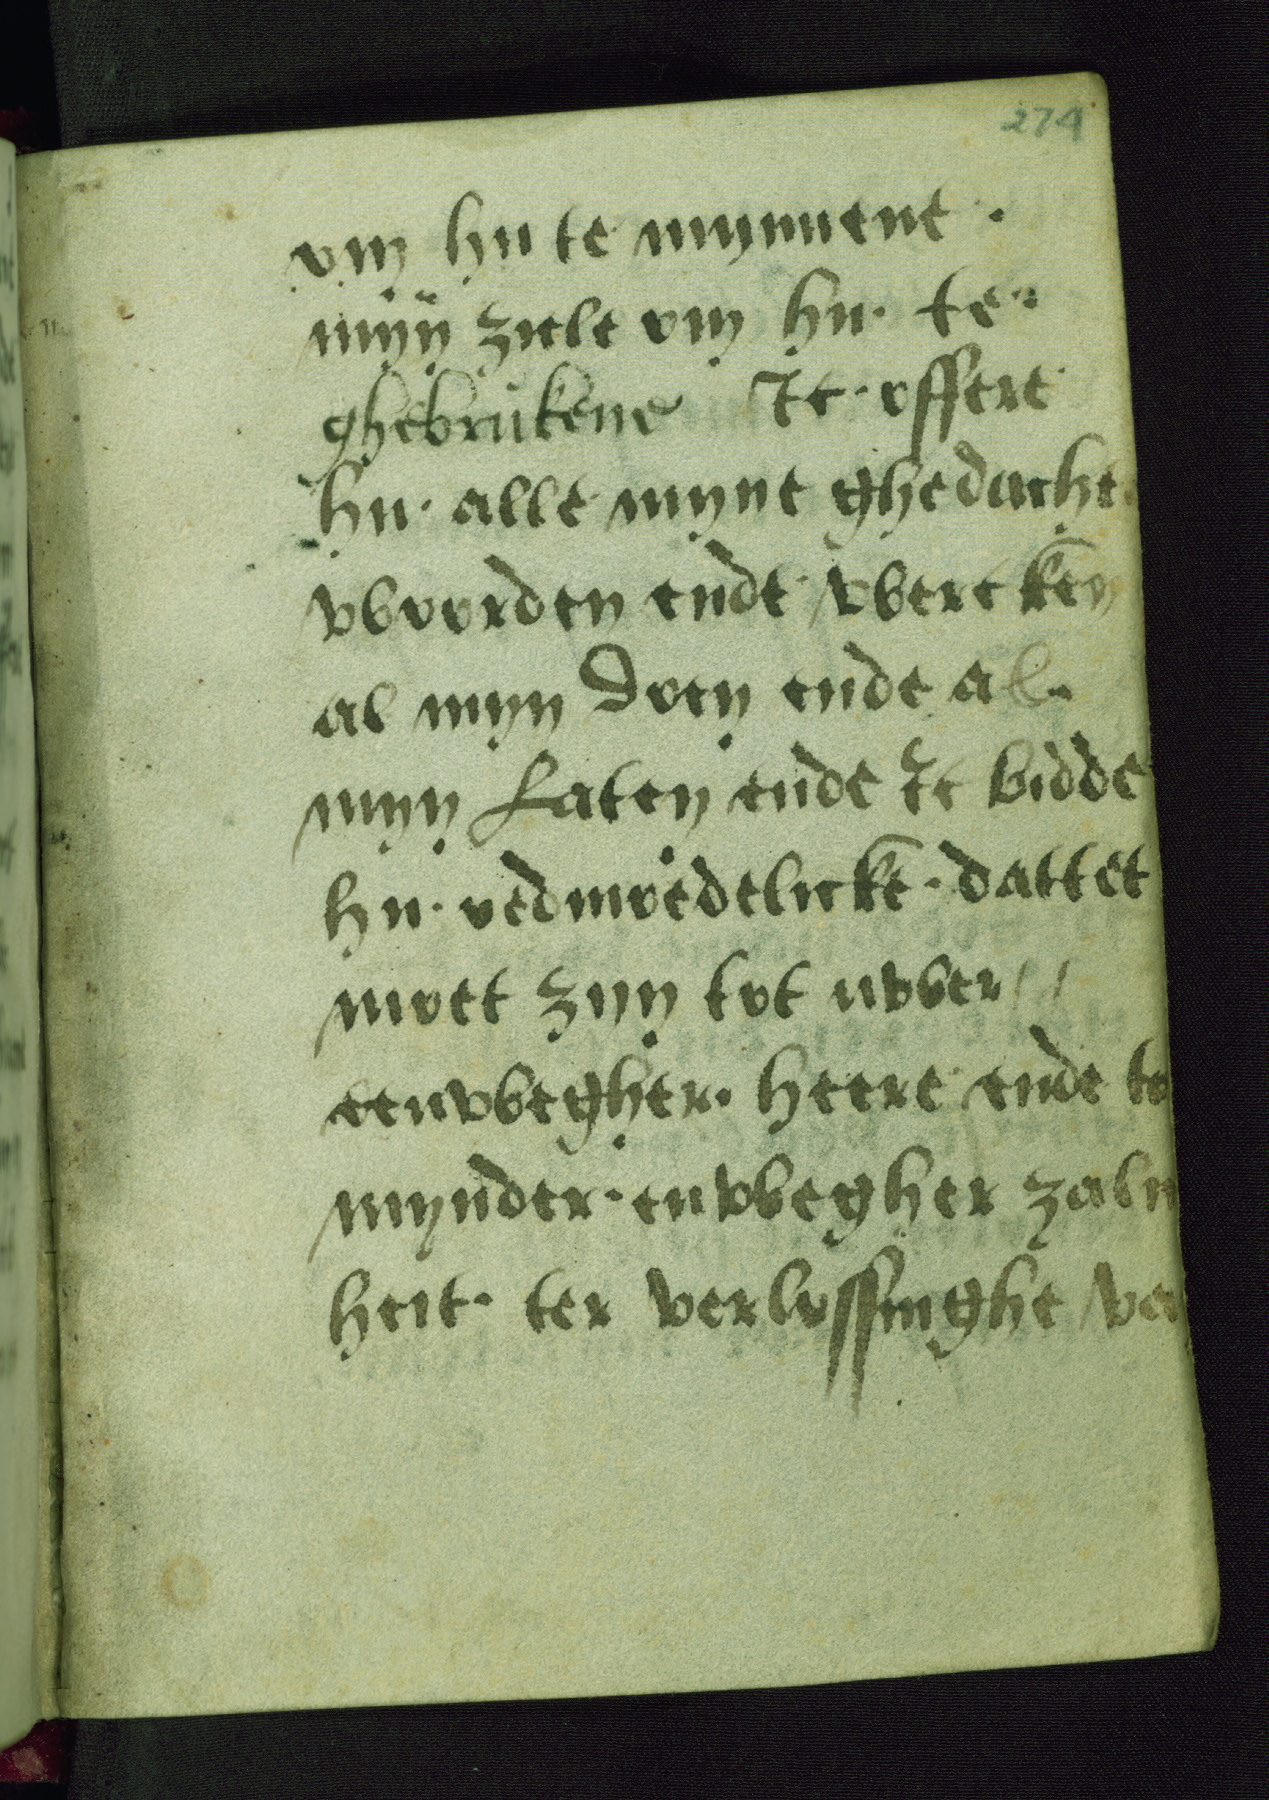 274
om hu te mynnene .
mijn ziele om hu · te ·
ghebrukene Ic · offere
hu · alle myne ghedachte
vboorden ende vbercken
al myn doen ende al.
myn Laten ende Ic bidde
hu · oedmoedelicke · dattet
moet zyn tot uvber //
eeuvbegher · heere ende to
mynder · euvbegher zalu
heit · ter verlossinghe va